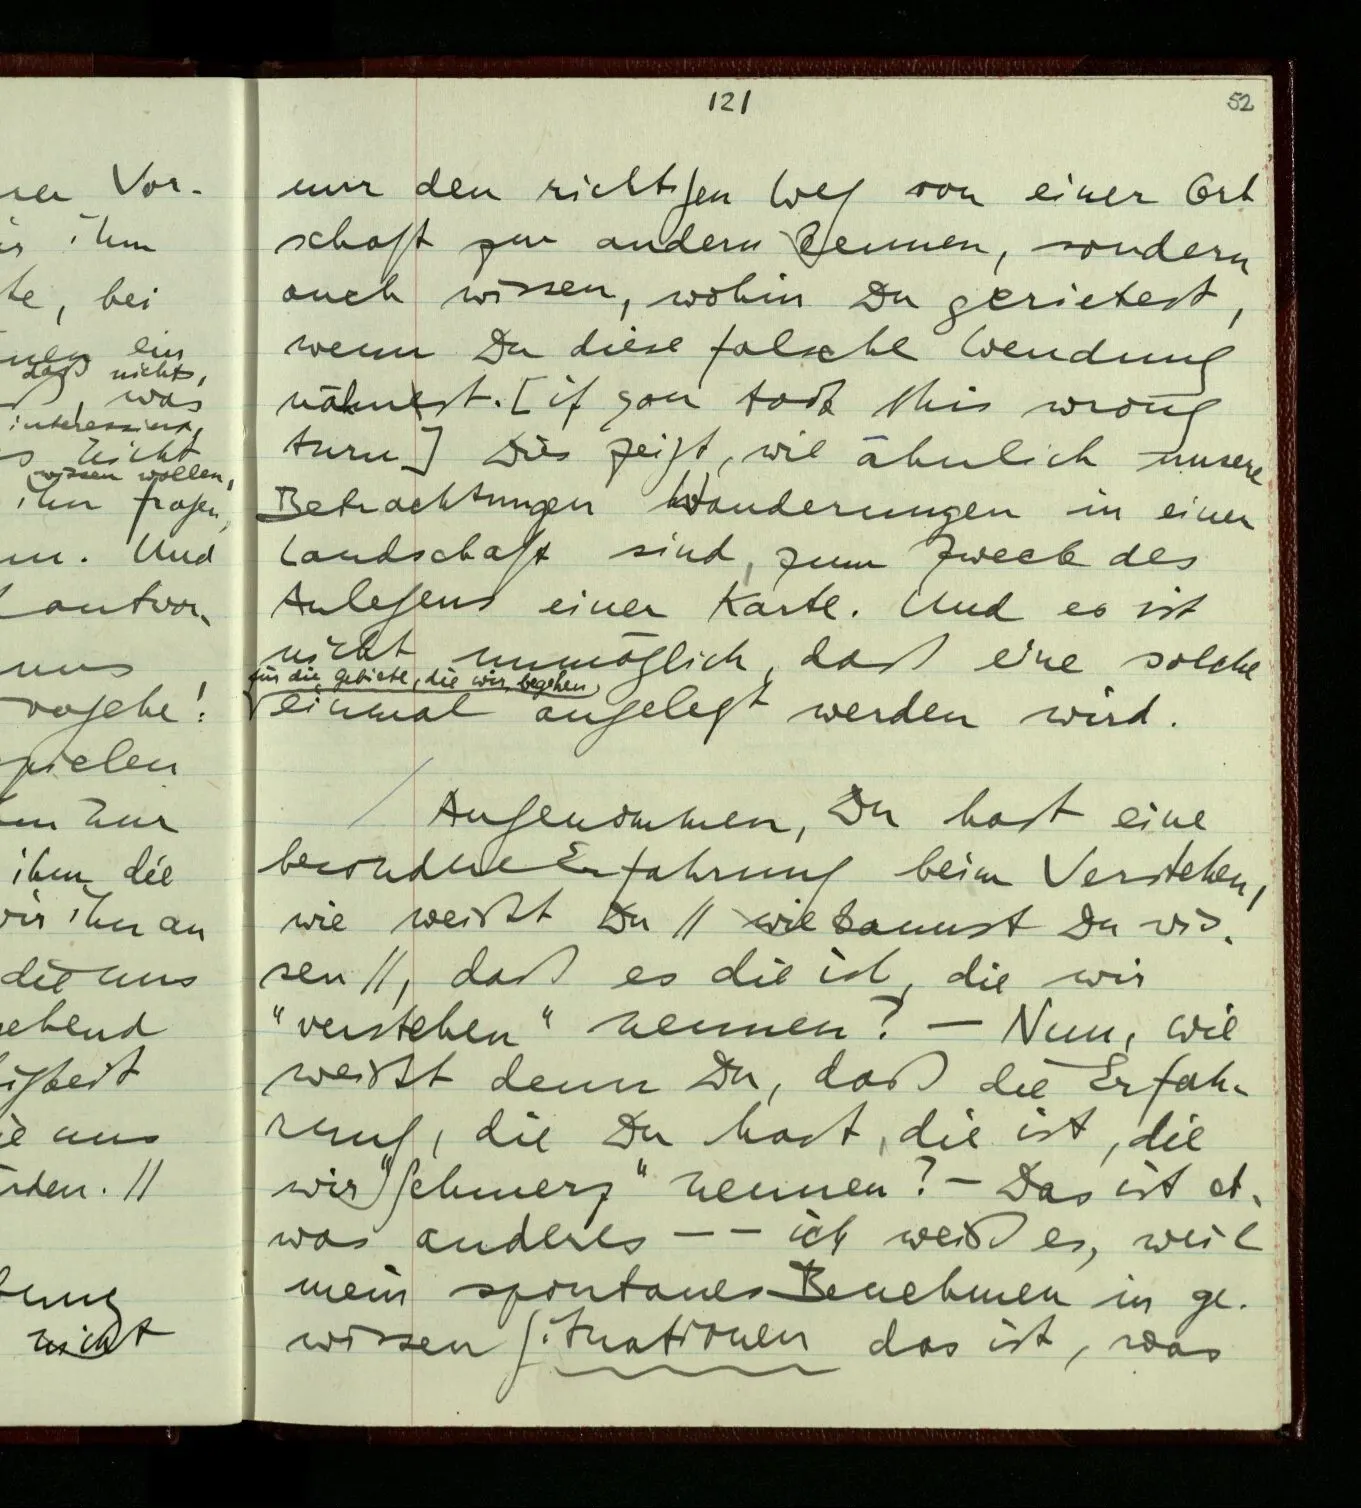 121
52
nur den richtigen Weg von einer Ort
schaft zur andern kennen, sondern
auch wissen, wohin Du gerietest,
wenn Du diese falsche Wendung
nähmest. [if you took this wrong
turn] Dies zeigt, wie ähnlich unsere
Betrachtungen Wanderungen in einer
Landschaft sind, zum Zweck des
Anlegens einer Karte. Und es ist
nicht unmöglich, daß eine solche
für die Gebiete, die wir begehen,
einmal angelegt werden wird.
Angenommen, Du hast eine
besondre Erfahrung beim Verstehen,
wie weißt Du // wie kannst Du wis-
sen //, daß es die ist, die wir
"verstehen" nennen? — Nun, wie
weißt denn Du, daß die Erfah-
rung, die Du hast, die ist, die
wir "Schmerz" nennen? — Das ist et-
was anderes — — ich weiß es, weil
mein spontanes Benehmen in ge-
wissen Situationen das ist, was
Vor-
ihm
te, bei
ein
daß nichts,
was
interessiert,
nicht
wissen wollen,
ihn fragen,
Und
antwor-
uns
spielen
nur
ihm die
wir ihn an
die uns
ie uns
rden. //
nicht